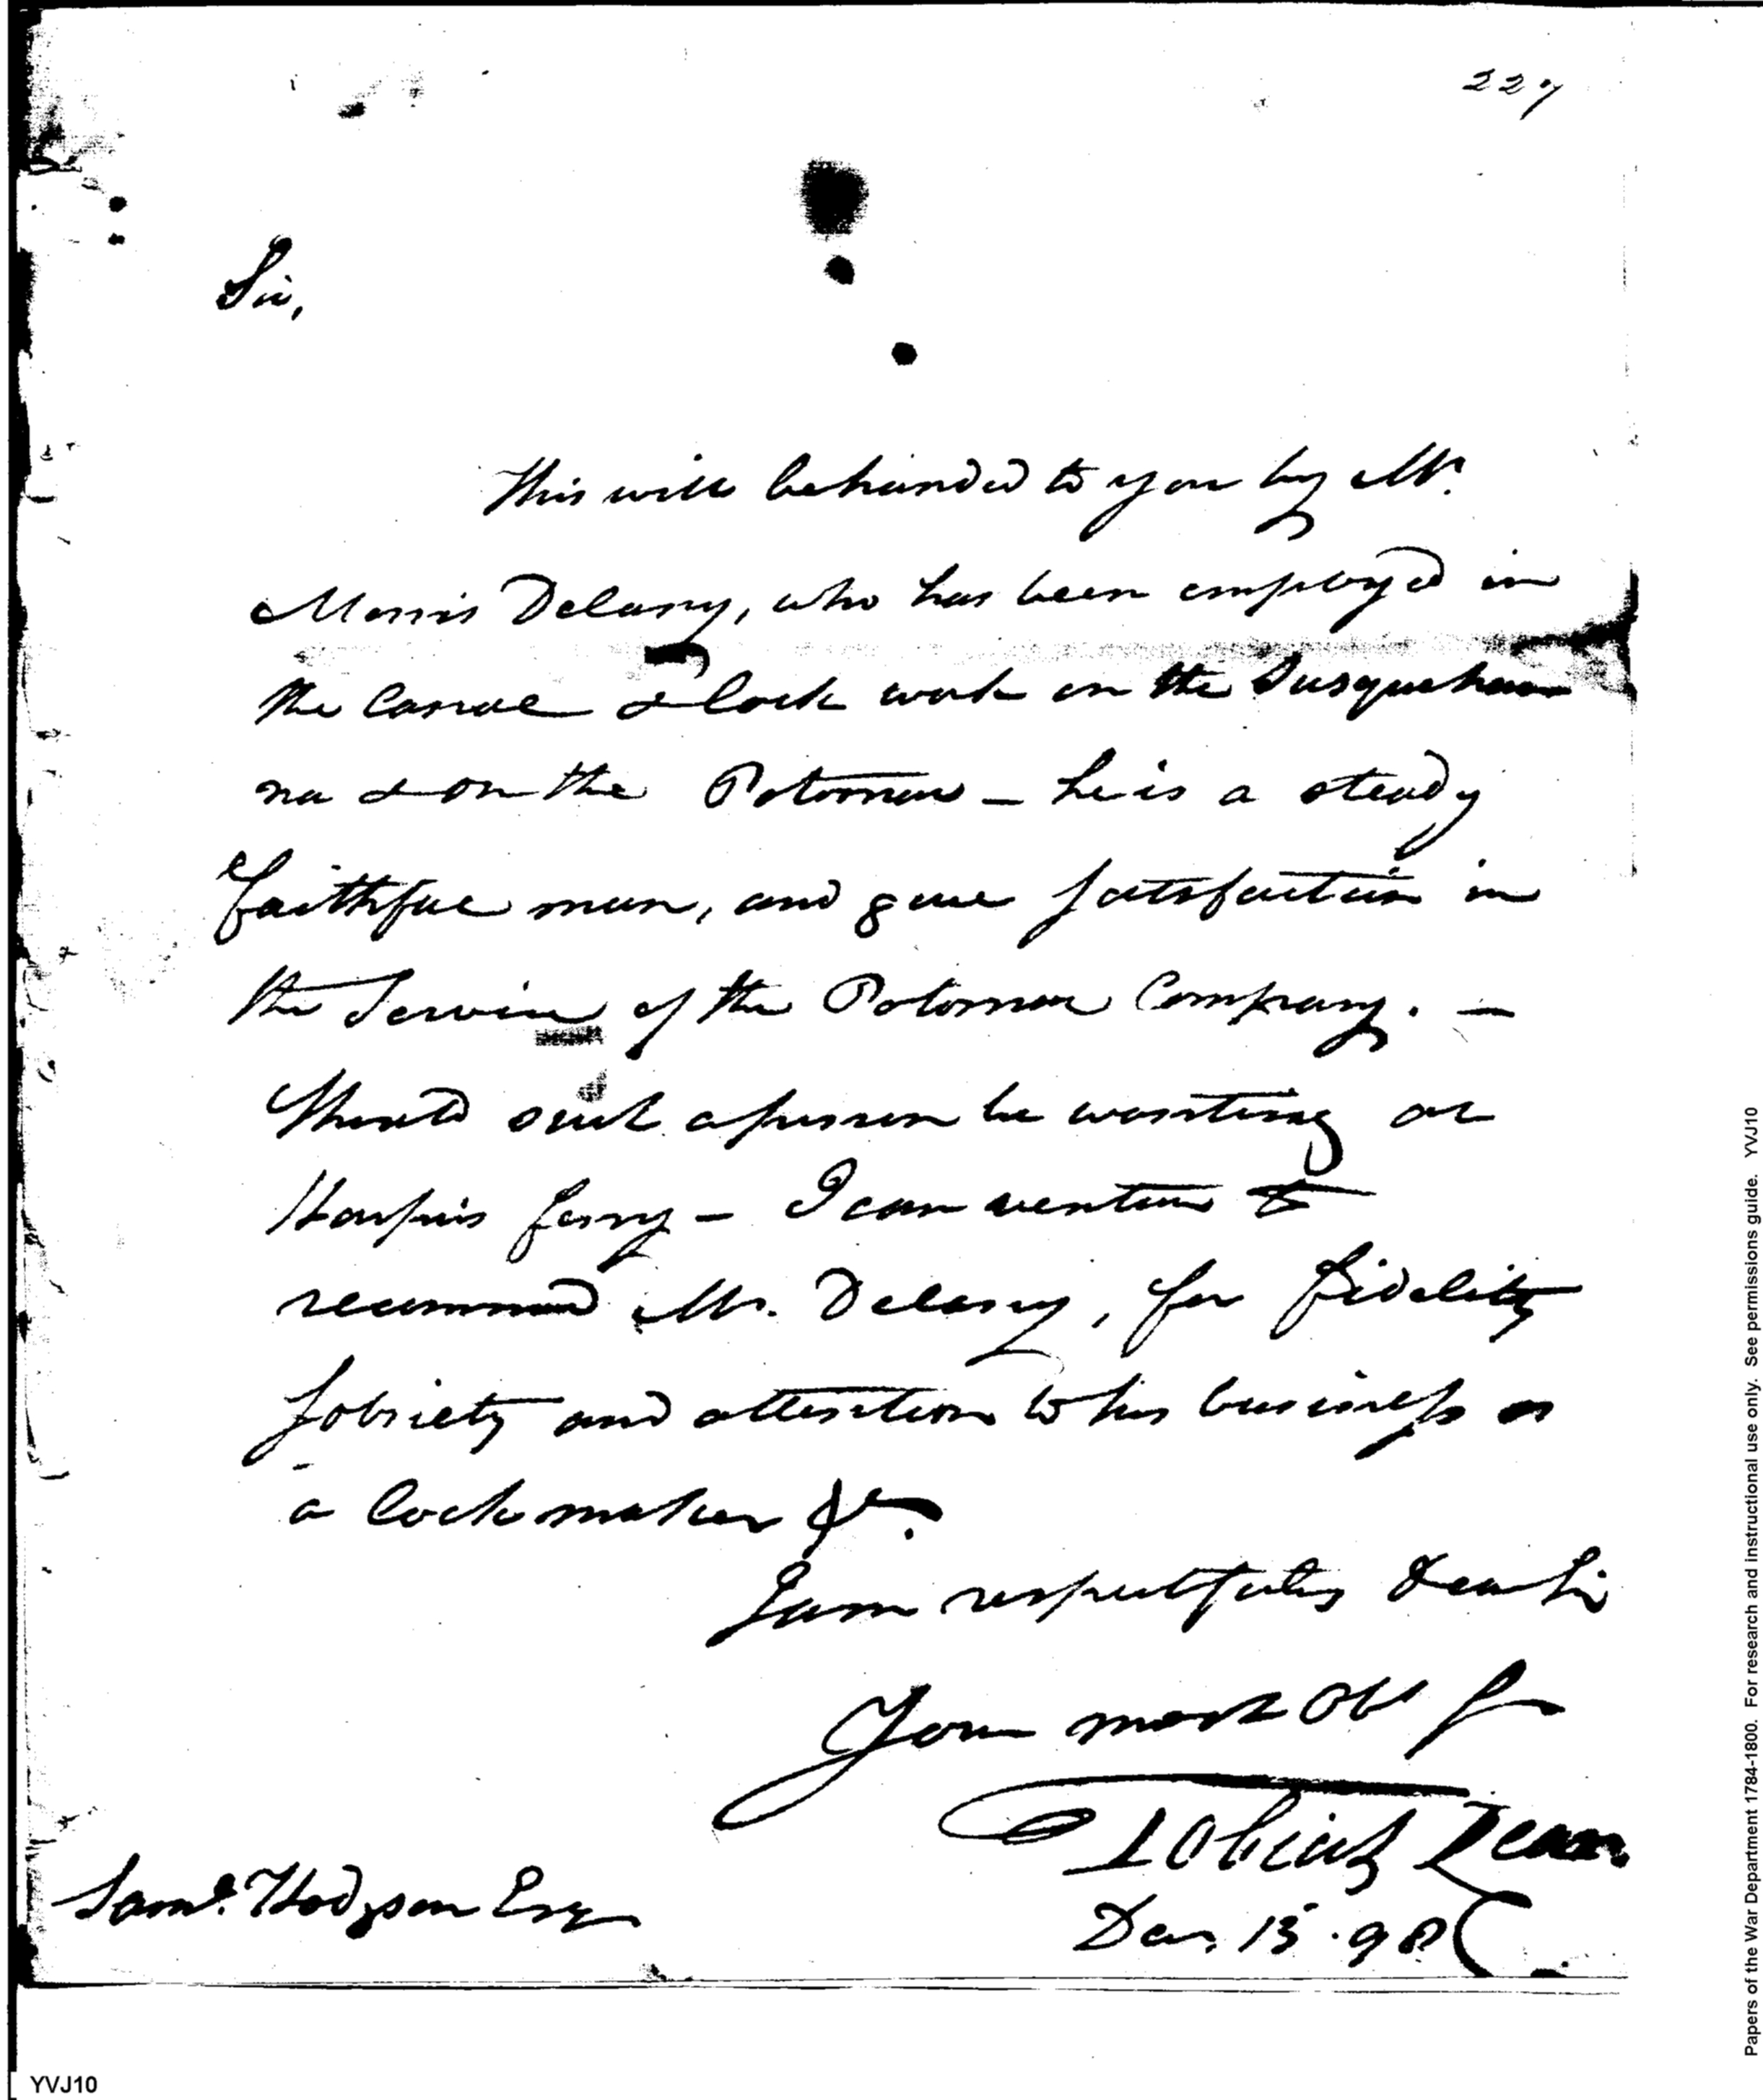 227
Sir,
This will be handed to you by Mr.
Morris Delany, who has been employ'd in
the Canal & lock work on the Susquehan
na & on the Potomac — he is a steady
faithful man, and gave satisfaction in
the Service of the Potomac Company. —
Should such a person be wanting at
Harpers ferry — I can venture to
recommend Mr. Delany, for fidelity
sobriety and attention to his business as
a lock maker &c.
I am respectfully Dear Sir
Your most Obt S
Tobias Lear.
Dec. 15. 98
Saml. Hodgson Esq
YVJ10
Papers of the War Department 1784-1800. For research and instructional use only. See permissions guide. YVJ10